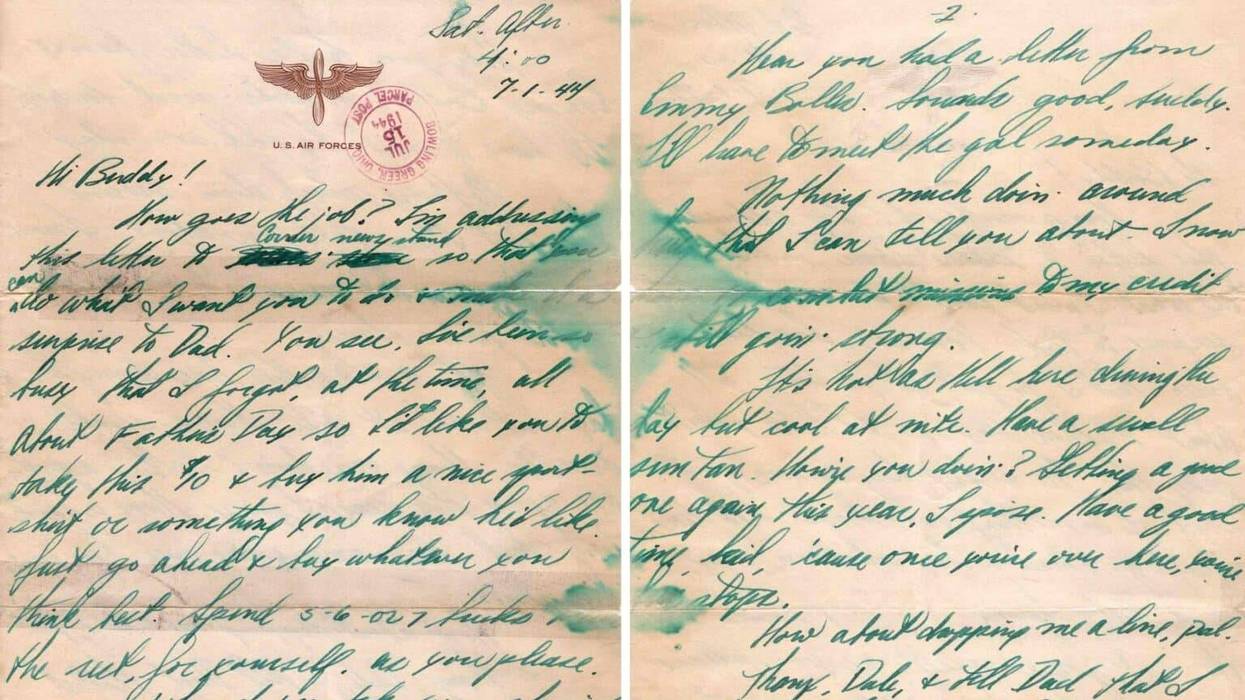 Sat. After.
4:00
7-1-44
U.S. AIR FORCES
BOWLING GREEN, OHIO
JUL
15
1944
PARCEL POST
Hi Buddy!
How goes the job? I'm addressing
Courier newsstand
this letter to so that
can
do what I want you to do &
surprise to Dad. You see, I've been so
busy that I forgot, at the time, all
about Father's Day so I'd like you to
take this $10 & buy him a nice sport-
shirt or something you know he'd like.
Just go ahead & buy whatever you
think best. Spend 5-6-or 7 bucks
the rest, for yourself, as you please.
-2-
Hear you had a letter from
Emmy Sounds good, buddy.
I'll have to meet the gal someday.
Nothing much doin' around
here that I can tell you about. I now
combat missions to my credit
& still goin' strong.
It's hot as Hell here during the
day but cool at nite. Have a swell
sun tan. How're you doin'? Getting a good
one again this year, I spose. Have a good
time, kid, 'cause once you're over here, you're
stops.
How about dropping me a line, pal.
Thanx, Dale, & tell Dad that I